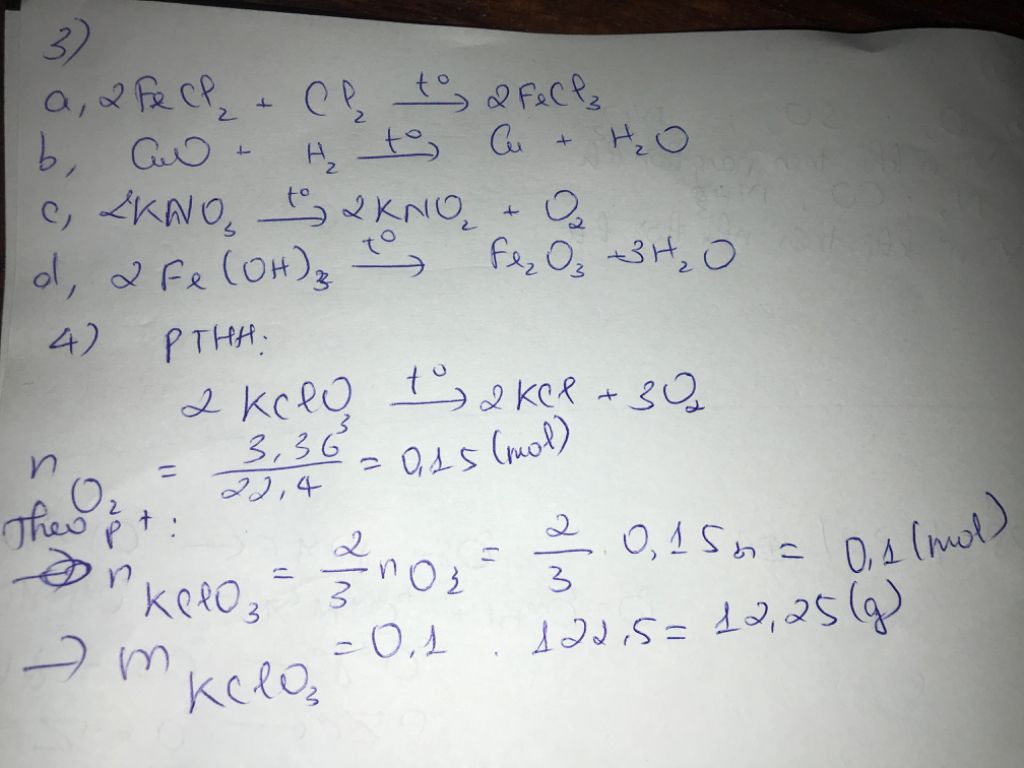 3)
a, 2FeCl₂ + Cl₂ —t°→ 2FeCl₃
b, CuO + H₂ —t°→ Cu + H₂O
c, 2KNO₃ —t°→ 2KNO₂ + O₂
d, 2Fe(OH)₃ —t°→ Fe₂O₃ + 3H₂O
4) PTHH:
2KClO₃ —t°→ 2KCl + 3O₂
n O₂ = 3,36 / 22,4 = 0,15 (mol)
Theo pt:
→ n KClO₃ = 2/3 n O₂ = 2/3 . 0,15 = 0,1 (mol)
→ m KClO₃ = 0,1 . 122,5 = 12,25 (g)